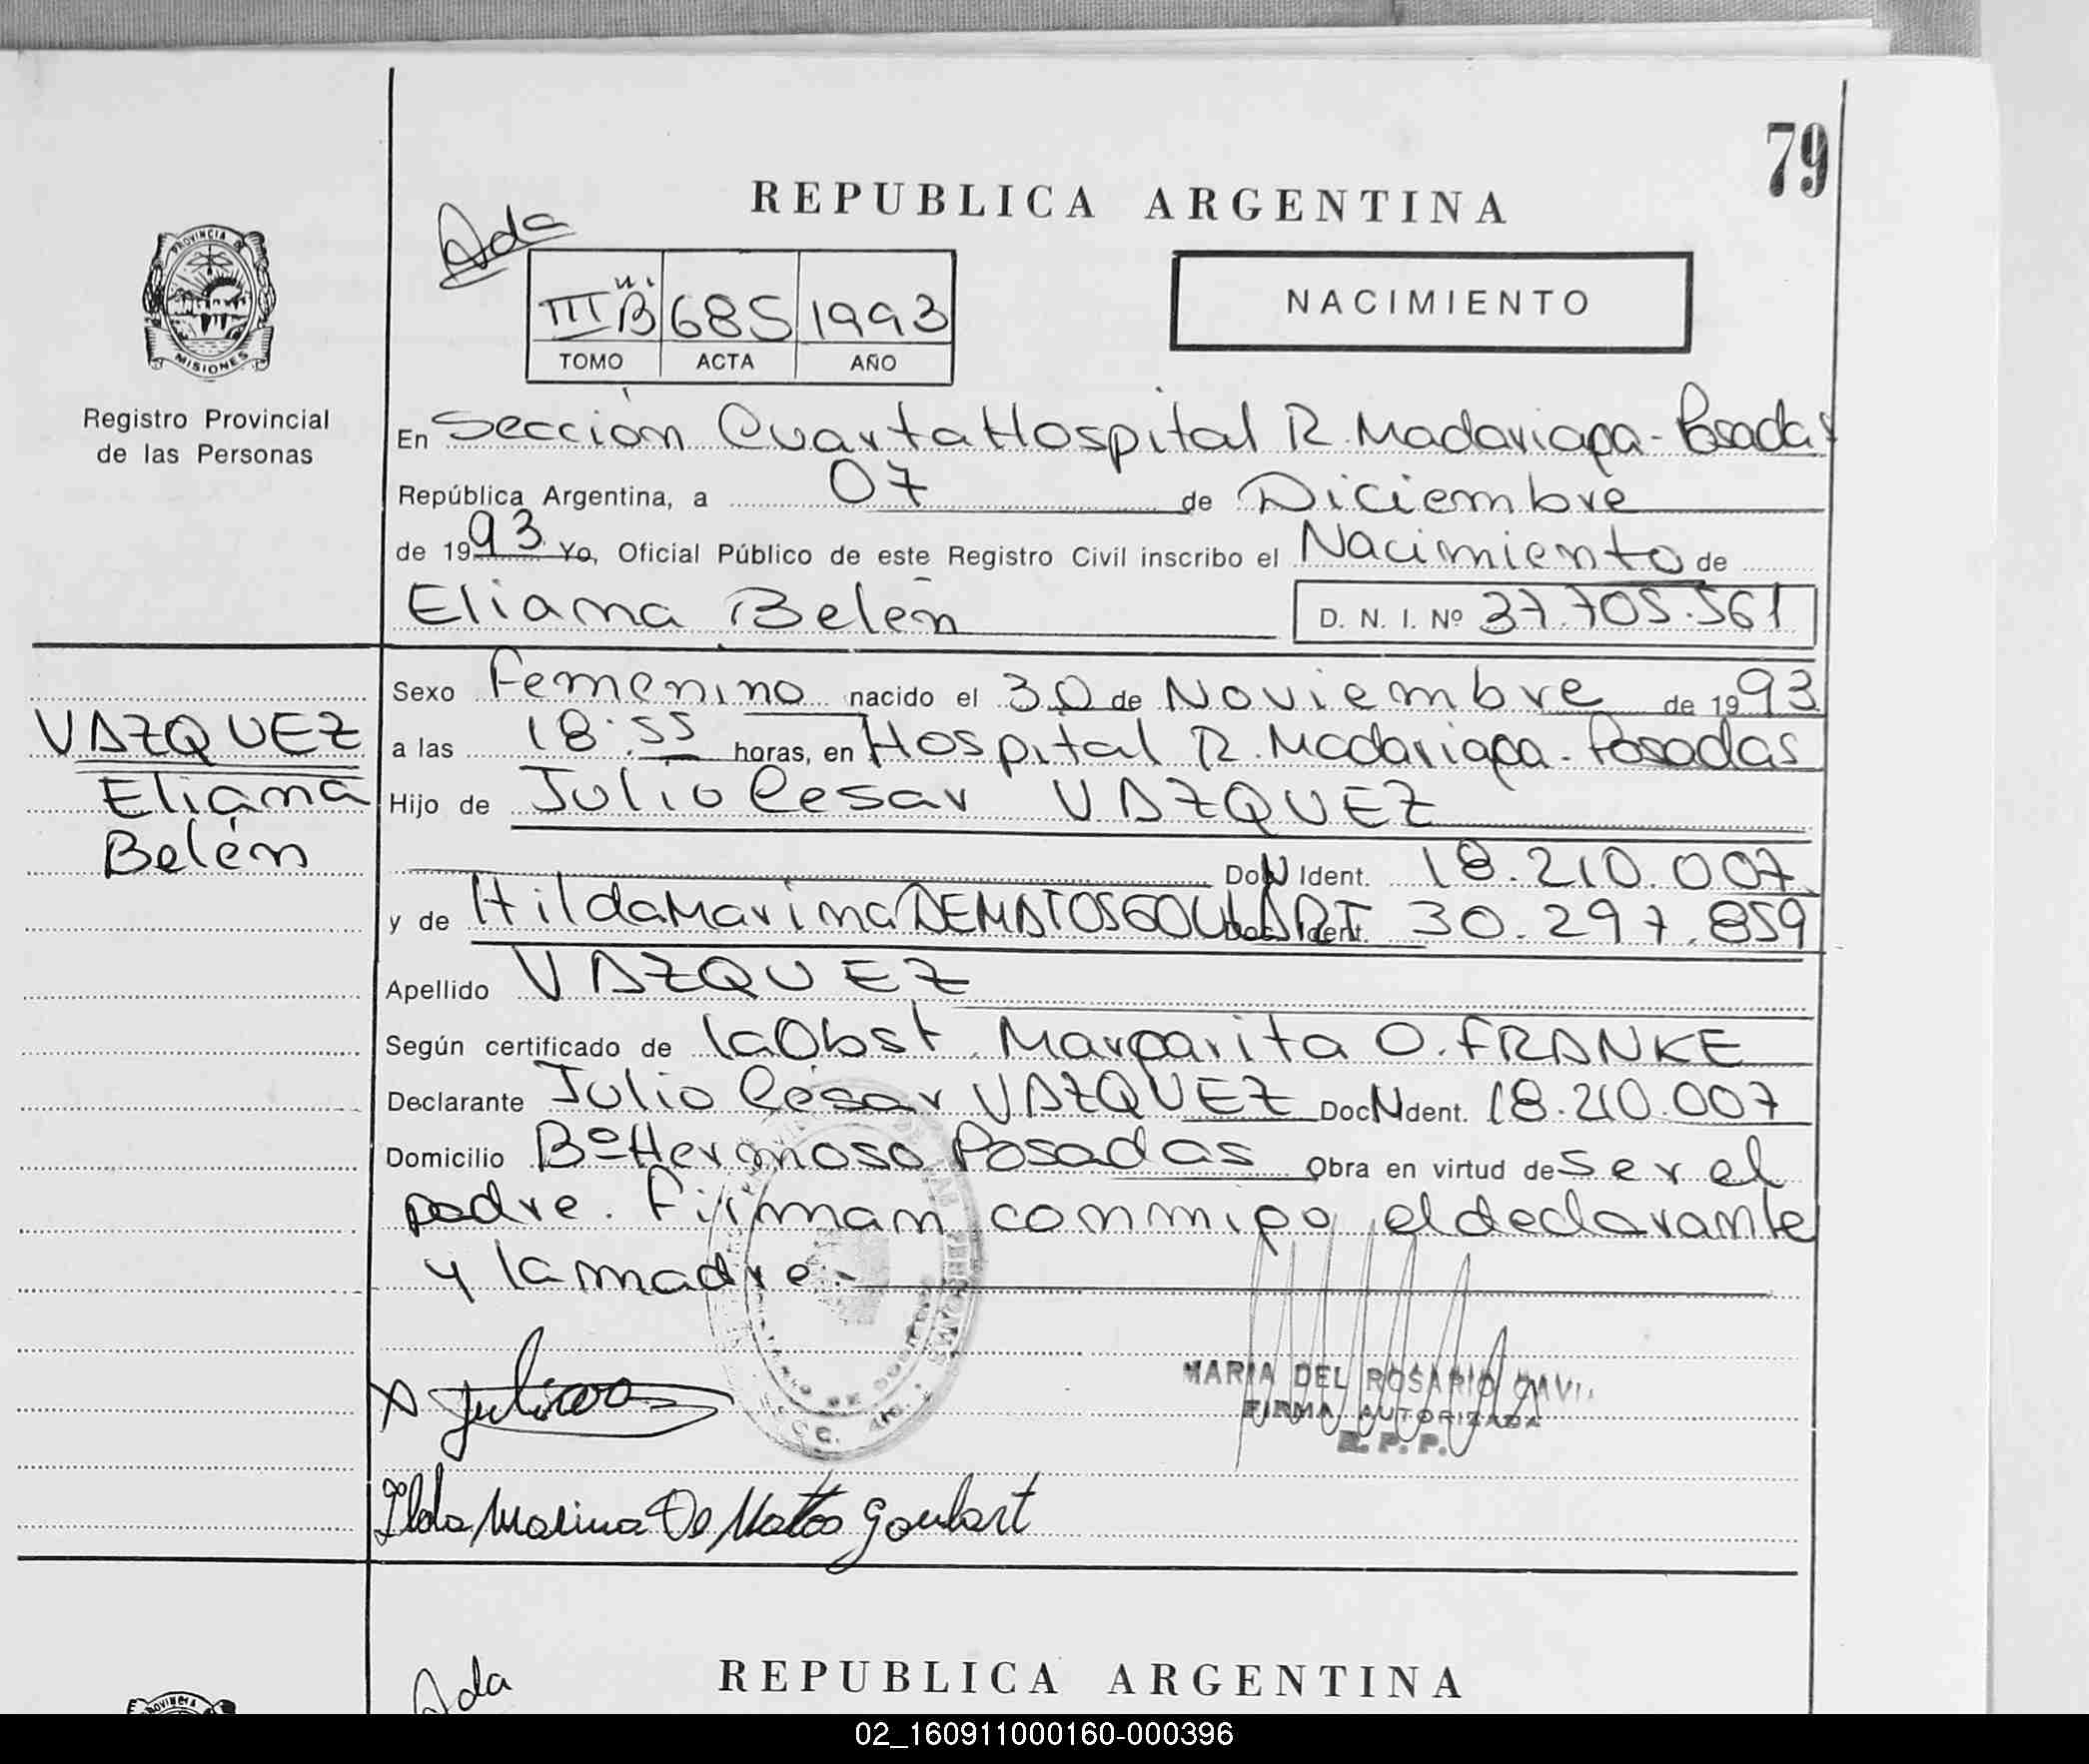 79
REPUBLICA ARGENTINA
Ada
III "B" 685 1993
TOMO ACTA AÑO
NACIMIENTO
PROVINCIA DE
MISIONES
Registro Provincial
de las Personas
En Sección Cuarta Hospital R. Madariaga - Posadas
República Argentina, a 07 de Diciembre
de 1993 Yo, Oficial Público de este Registro Civil inscribo el Nacimiento de
Eliana Belén D. N. I. Nº 37.705.561
Sexo Femenino nacido el 30 de Noviembre de 1993
VAZQUEZ
Eliana
Belén
a las 18:55 horas, en Hospital R. Madariaga - Posadas
Hijo de Julio Cesar VAZQUEZ
Doc N Ident. 18.210.007
y de Hilda Marina DEMATOSGOULART Doc. Ident. 30.297.859
Apellido VAZQUEZ
Según certificado de la Obst. Margarita O. FRANKE
Declarante Julio César VAZQUEZ Doc N Ident. 18.210.007
Domicilio Bº Hermoso Posadas Obra en virtud de ser el
padre. Firman conmigo el declarante
y la madre.-
MARIA DEL ROSARIO
FIRMA AUTORIZADA
R. P. P.
Ilda Marina De Mattos Goulart
REPUBLICA ARGENTINA
Ada
PROVINCIA
02_160911000160-000396